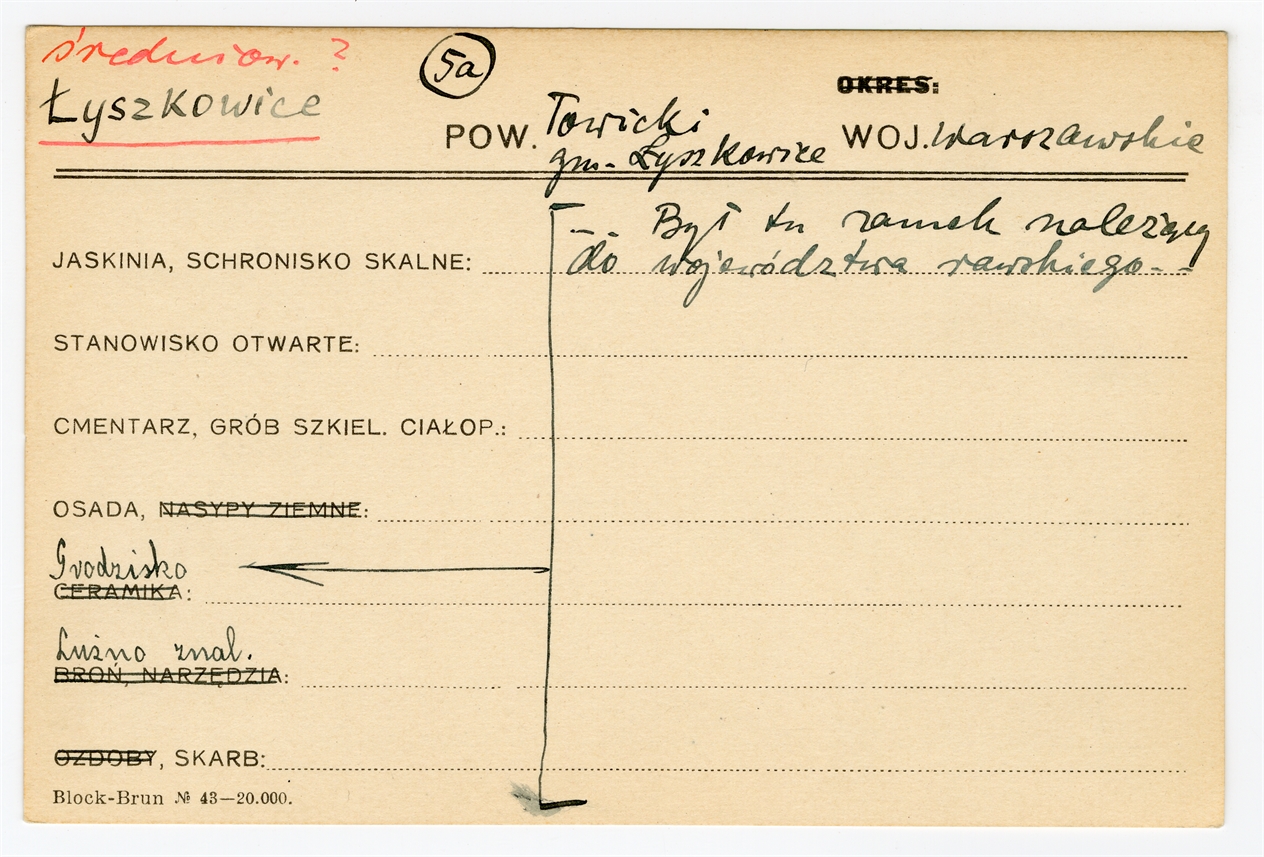 średniow. ?
5a
OKRES:
Łyszkowice
POW. Łowicki WOJ. Warszawskie
gm. Łyszkowice
-.. Był tu zamek należący
JASKINIA, SCHRONISKO SKALNE: do województwa rawskiego--
STANOWISKO OTWARTE:
CMENTARZ, GRÓB SZKIEL. CIAŁOP.:
OSADA, NASYPY ZIEMNE:
Grodzisko
CERAMIKA:
Luźno znal.
BROŃ, NARZĘDZIA:
OZDOBY, SKARB:
Block-Brun № 43—20.000.